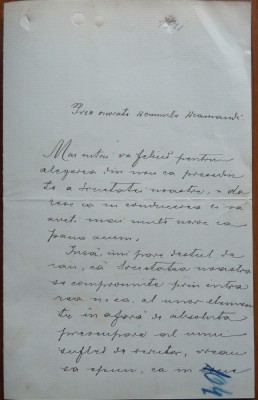 Prea onorate Domnule Adamandi.
Mai întâi vă felicit pentru
alegerea din nou ca preşedin-
te a Societăţei noastre, do-
resc ca in conducerea ei să
aveţi mai mult noroc ca
pâna acum.
Însă îmi pare destul de
rău, că Societatea noastră
se compromite prin intra
rea n. ca al unor elemen
te in afară de absoluta
presupunere al unui
suflet de scriitor, vreau
să spun, ca m